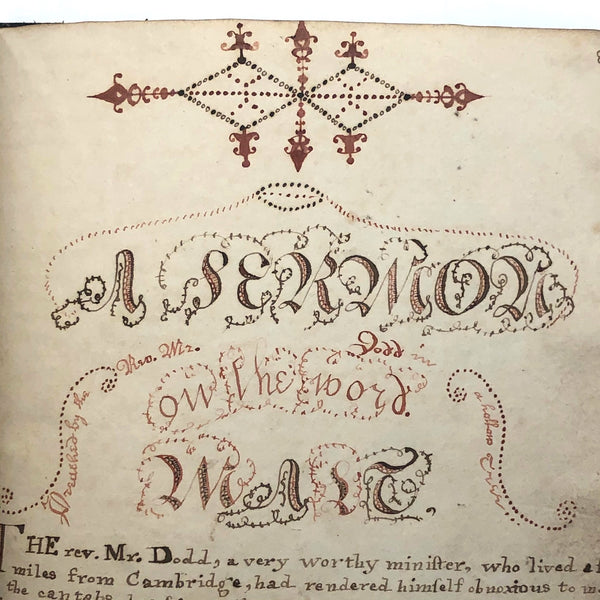 A SERMON
Preached by the Rev. Mr. Dodd in a hollow Tree
on the word.
MALT,
THE rev. Mr. Dodd, a very worthy miniſter, who lived a f
miles from Cambridge, had rendered himself obnoxious to m
the cantabs